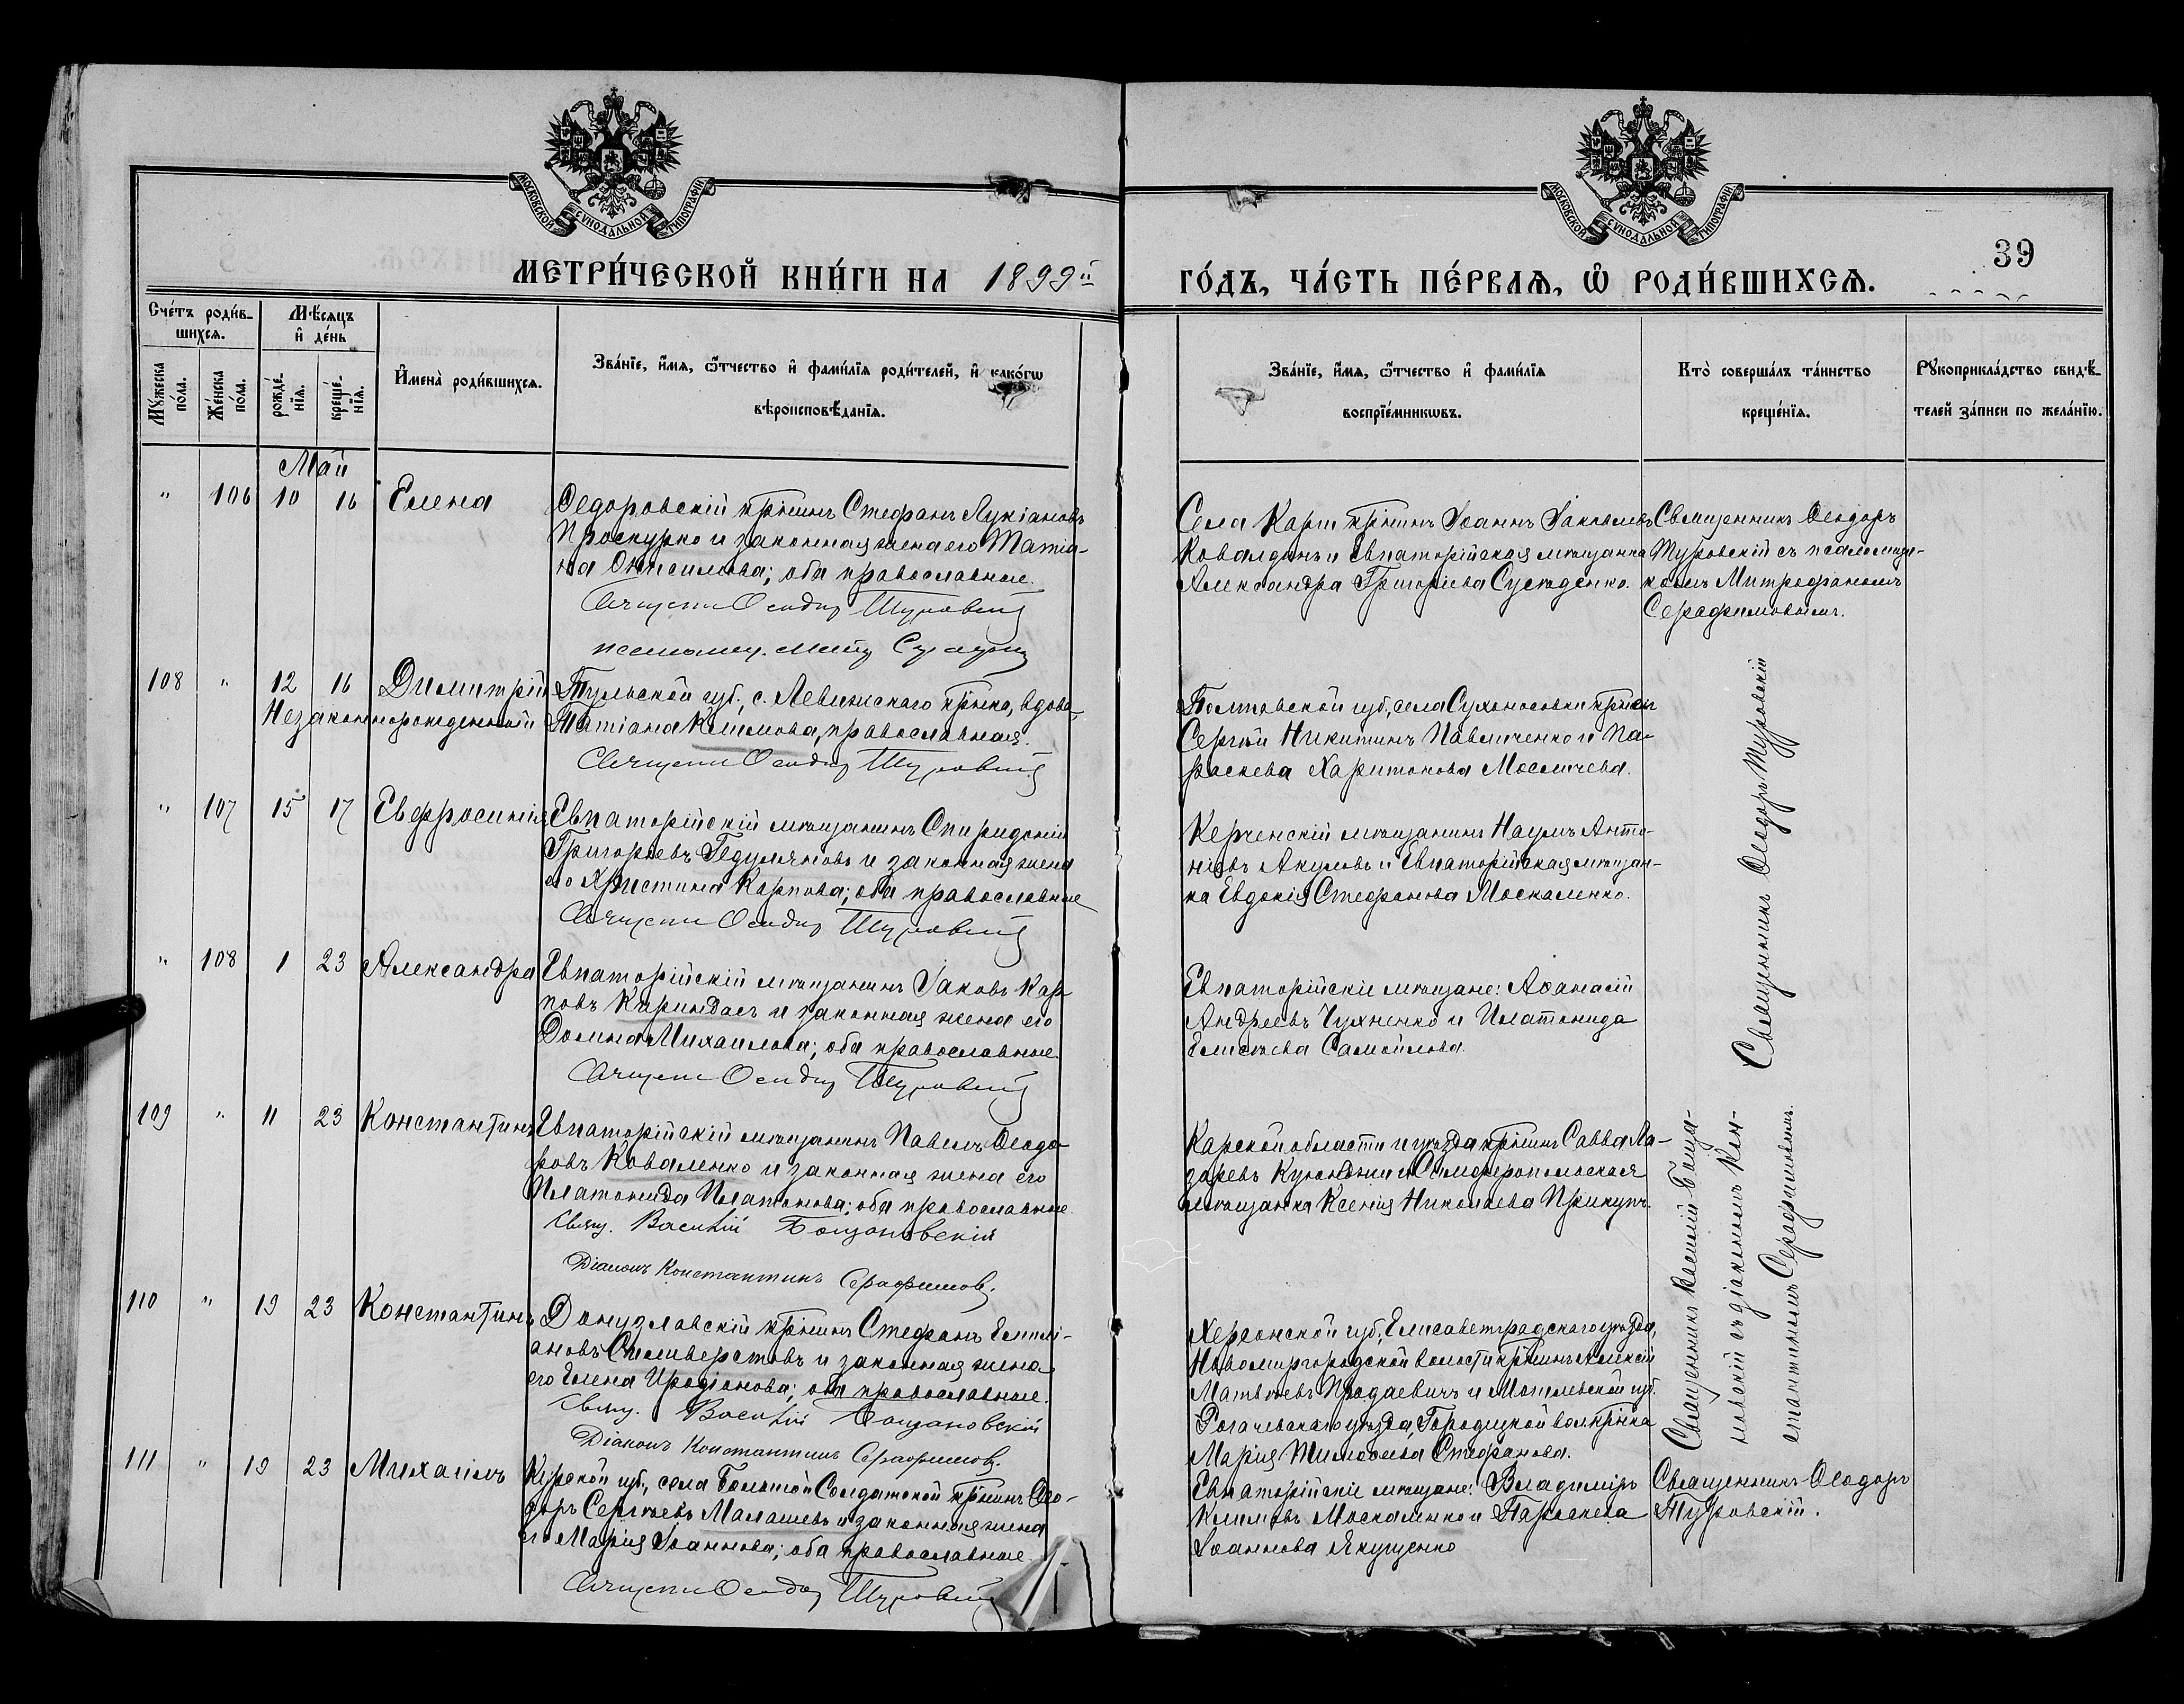 МОСКОВСКОЙ СѴНОДАЛЬНОЙ ТИПОГРАФІИ
МОСКОВСКОЙ СѴНОДАЛЬНОЙ ТИПОГРАФІИ
39
МЕТРИ́ЧЕСКОЙ КНИ́ГИ НА 1899й ГО́ДЪ, ЧА́СТЬ ПЕ́РВАѦ, Ѡ РОДИ́ВШИХСѦ.
Сче́тъ роди́в-
шихсѧ.
Мѣ́сѧцъ
и҆ де́нь
Мꙋ́жеска по́ла.
Же́нска по́ла.
рожде́-
нїѧ.
креще́-
нїѧ.
И҆мена̀ роди́вшихсѧ.
Зва́нїе, и҆́мѧ, ѻ҆́тчество и҆ фами́лїѧ роди́телей, и҆ како́гѡ
вѣроисповѣ́данїѧ.
Зва́нїе, и҆́мѧ, ѻ҆́тчество и҆ фами́лїѧ
воспрїе́мникѡвъ.
Кто̀ соверша́лъ та́инство
креще́нїѧ.
Рꙋкоприкла́дство свидѣ́-
телей за́писи по жела́нїю.
Май
" 106 10 16 Елена
Ѳедоровскій крѣнинъ Стефанъ Лукіановъ
Проскурко и законная жена его Татіа-
на Онисимова; оба православные.
Священ Ѳеодор Туровскій
псаломщ. Митр Серафим
Села Карт крѣнинъ Іоаннъ Іаковлевъ
Ковалдинъ и Евпаторійская мѣщанка
Александра Григоріева Суслоденко.
Священникъ Ѳеодоръ
Туровскій съ псаломщи-
комъ Митрофаномъ
Серафимовымъ.
108 " 12 16 Димитрій
Незаконнорожденный
Тульской губ., с. Левинскаго крѣнка, вдова,
Татіана Климова, православная.
Священ Ѳеодор Туровскій
Полтавской губ., села Сухоносовки крѣнин
Сергѣй Никитинъ Павличенко и Па-
раскева Харитонова Мосеичева.
" 107 15 17 Евфросинія
Евпаторійскій мѣщанинъ Спиридонъ
Григорьевъ Гедулянов и законная жена
его Христина Карпова; оба православные
Священ Ѳеодор Туровскій
Керченскій мѣщанинъ Наумъ Анто-
ніевъ Акуловъ и Евпаторійская мѣщан-
ка Евдокія Стефанова Москаленко.
Священникъ Ѳеодоръ Туровскій
" 108 1 23 Александра
Евпаторійскій мѣщанинъ Іаковъ Кар-
повъ Кариндасъ и законная жена его
Домна Михаилова; оба православные
Священ Ѳеодор Туровскій
Евпаторійскіе мѣщане: Аѳанасій
Андреевъ Чухненко и Платонида
Елисѣева Самойлова.
109 " 11 23 Константинъ
Евпаторійскій мѣщанинъ Павелъ Ѳеодо-
ровъ Коваленко и законная жена его
Платонида Платонова; оба православные.
Свящ. Василій Бощановскій
Діаконъ Константинъ Серафимов.
Карской области и уѣзда крѣнинъ Савва Ла-
заревъ Куюнджи и Симферопольская
мѣщанка Ксенія Николаева Прикупъ.
Священникъ Василій Боща-
новскій съ діакономъ Кон-
стантиномъ Серафимовымъ.
110 " 19 23 Константинъ
Донузлавскій крѣнинъ Стефанъ Емилі-
ановъ Силиверстовъ и законная жена
его Елена Иродіонова; оба православные.
Свящ. Василій Бощановскій
Діаконъ Константинъ Серафимов.
Херсонской губ., Елисаветградскаго уѣзда,
Новомиргородской волости крѣнинъ Алексій
Матѳеевъ Продаевичъ и Могилевской губ.
Рогачевскаго уѣзда, Городецкой вол. крѣнка
Марія Тимоѳеева Стефанова.
111 " 19 23 Михаилъ
Курской губ., села Большой Солдатской крѣнинъ Ѳео-
доръ Сергѣевъ Малашевъ и законная жена
его Марія Іоаннова; оба православные
Священ Ѳеодор Туровскій
Евпаторійскіе мѣщане: Владиміръ
Климовъ Москаленко и Параскева
Іоаннова Якущенко
Священникъ Ѳеодоръ
Туровскій.